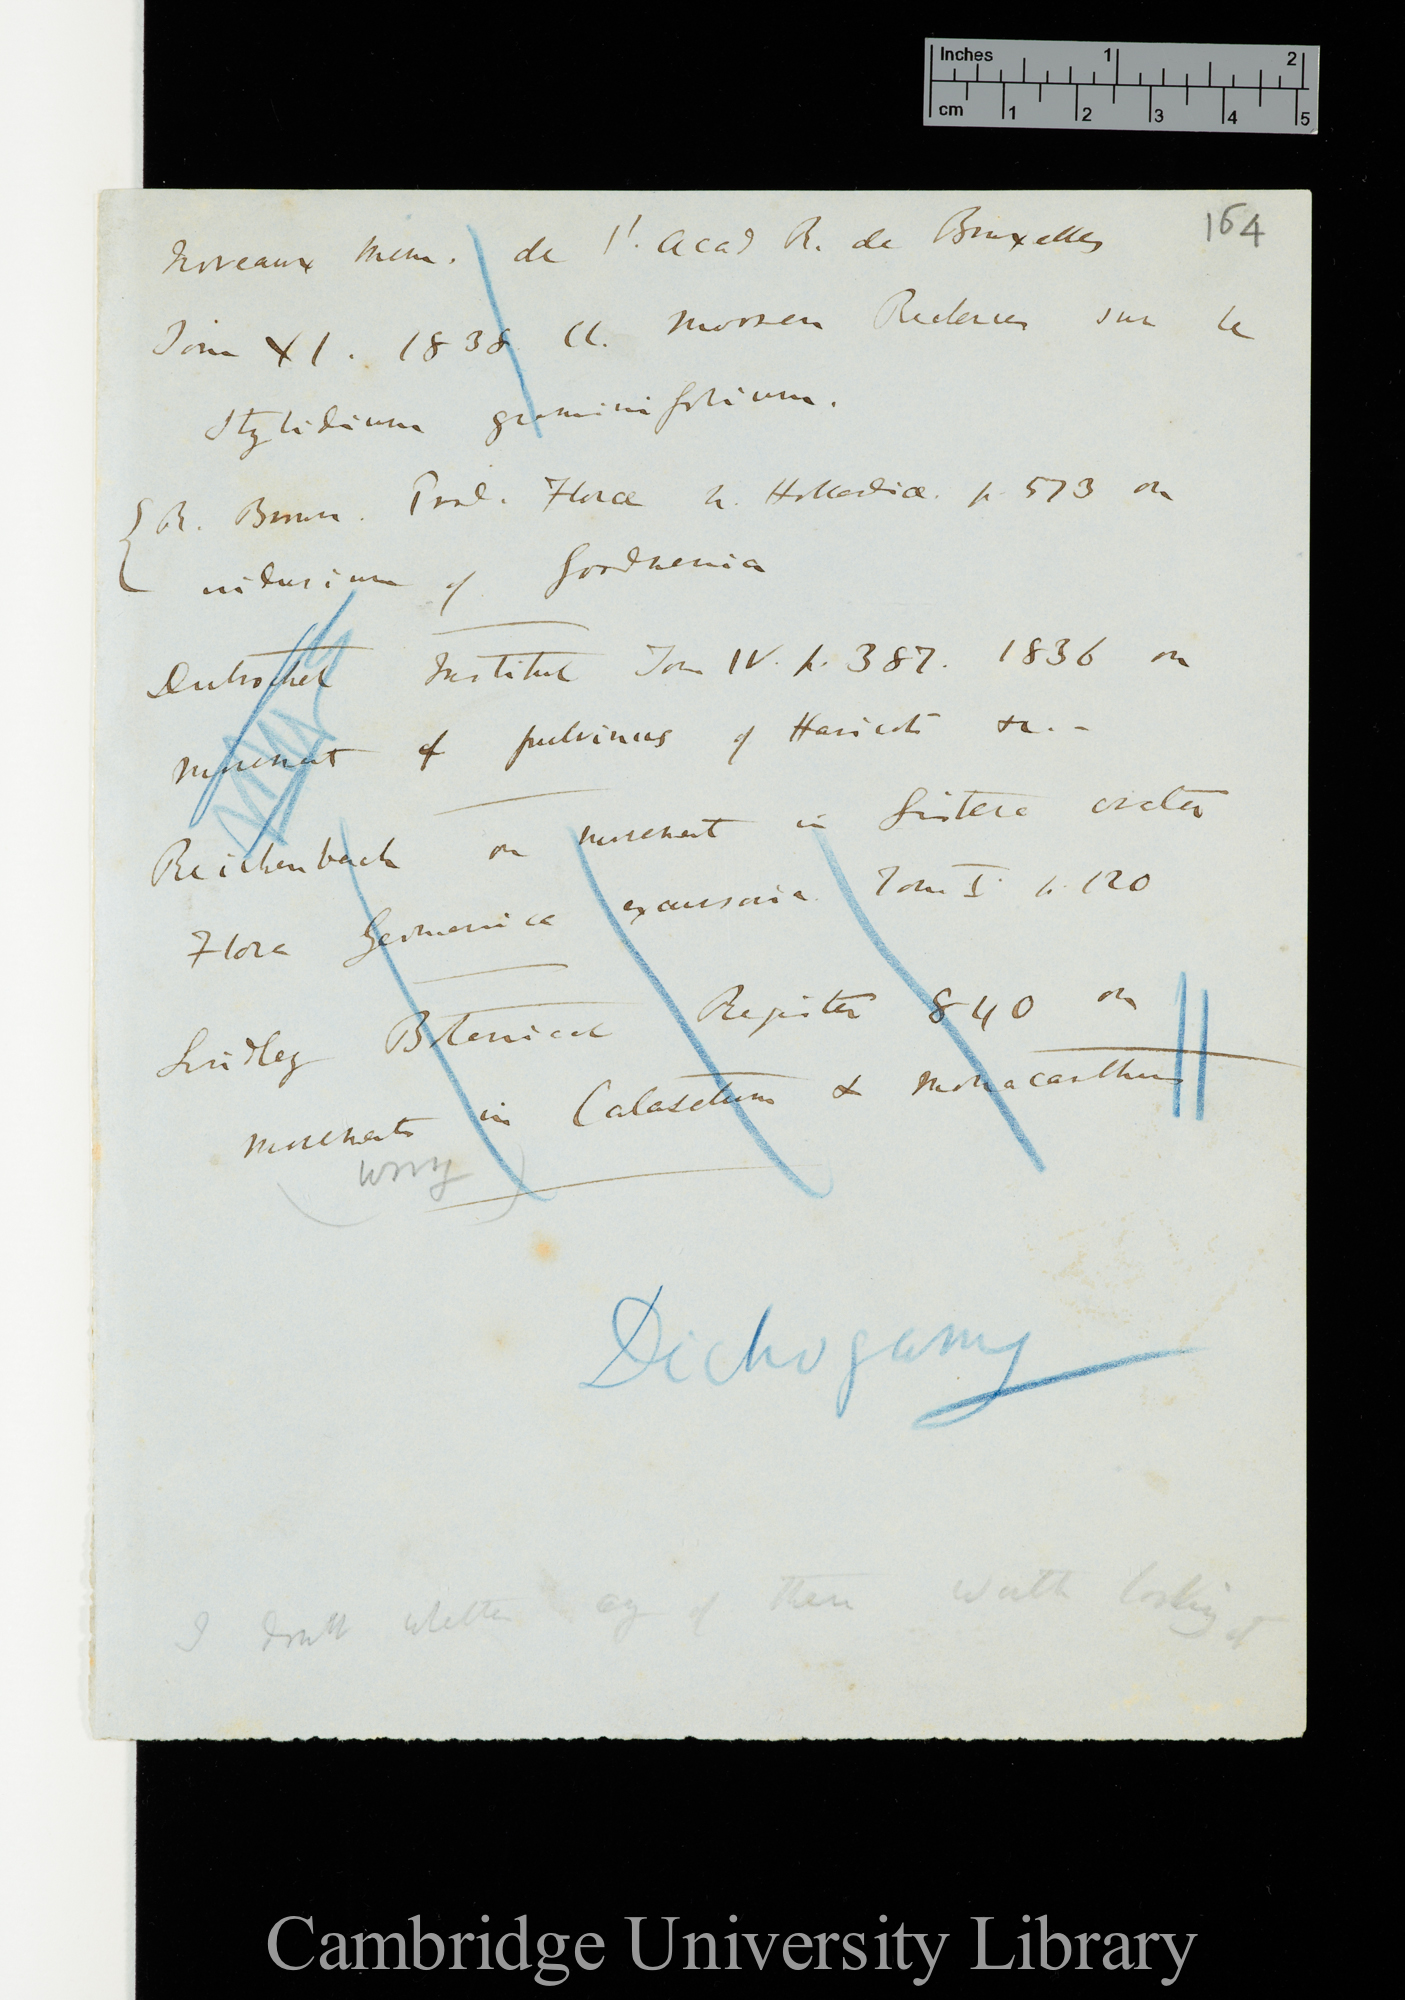 Inches 1 2
cm 1 2 3 4 5
164
Noveaux Mem. de l'. Acad R. de Bruxelles
Tom XI. 1838 Morren Recherches sur le
Stylidium graminifolium.
R. Brown. Prod. Florae N. Hollandiae. p. 573 on
indusium of Goodnenia
Dutrochet Institut Tom IV. p. 387. 1836 on
movement of pulvinus of Haricots &c. -
Reichenbach on movement in Listera ovata
Flora Germanica excursoria. Tom I. p. 120
Lindley Botanical Register 840 on
movements in Catasetum & Monacanthus
(worry)
Dichogamy
I doubt whether any of these worth looking at
Cambridge University Library